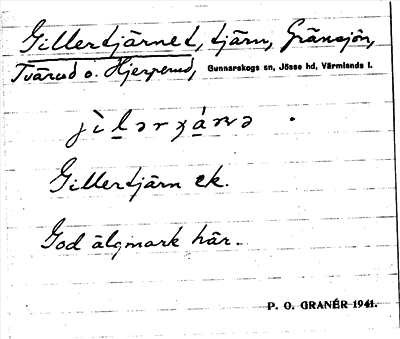 Gillertjärnet, tjärn, Gränsjön,
Tvärud o. Hjerperud, Gunnarskogs sn, Jösse hd, Värmlands l.
Gillertjärn ek.
God älgmark här.
P. O. GRANÉR 1941.